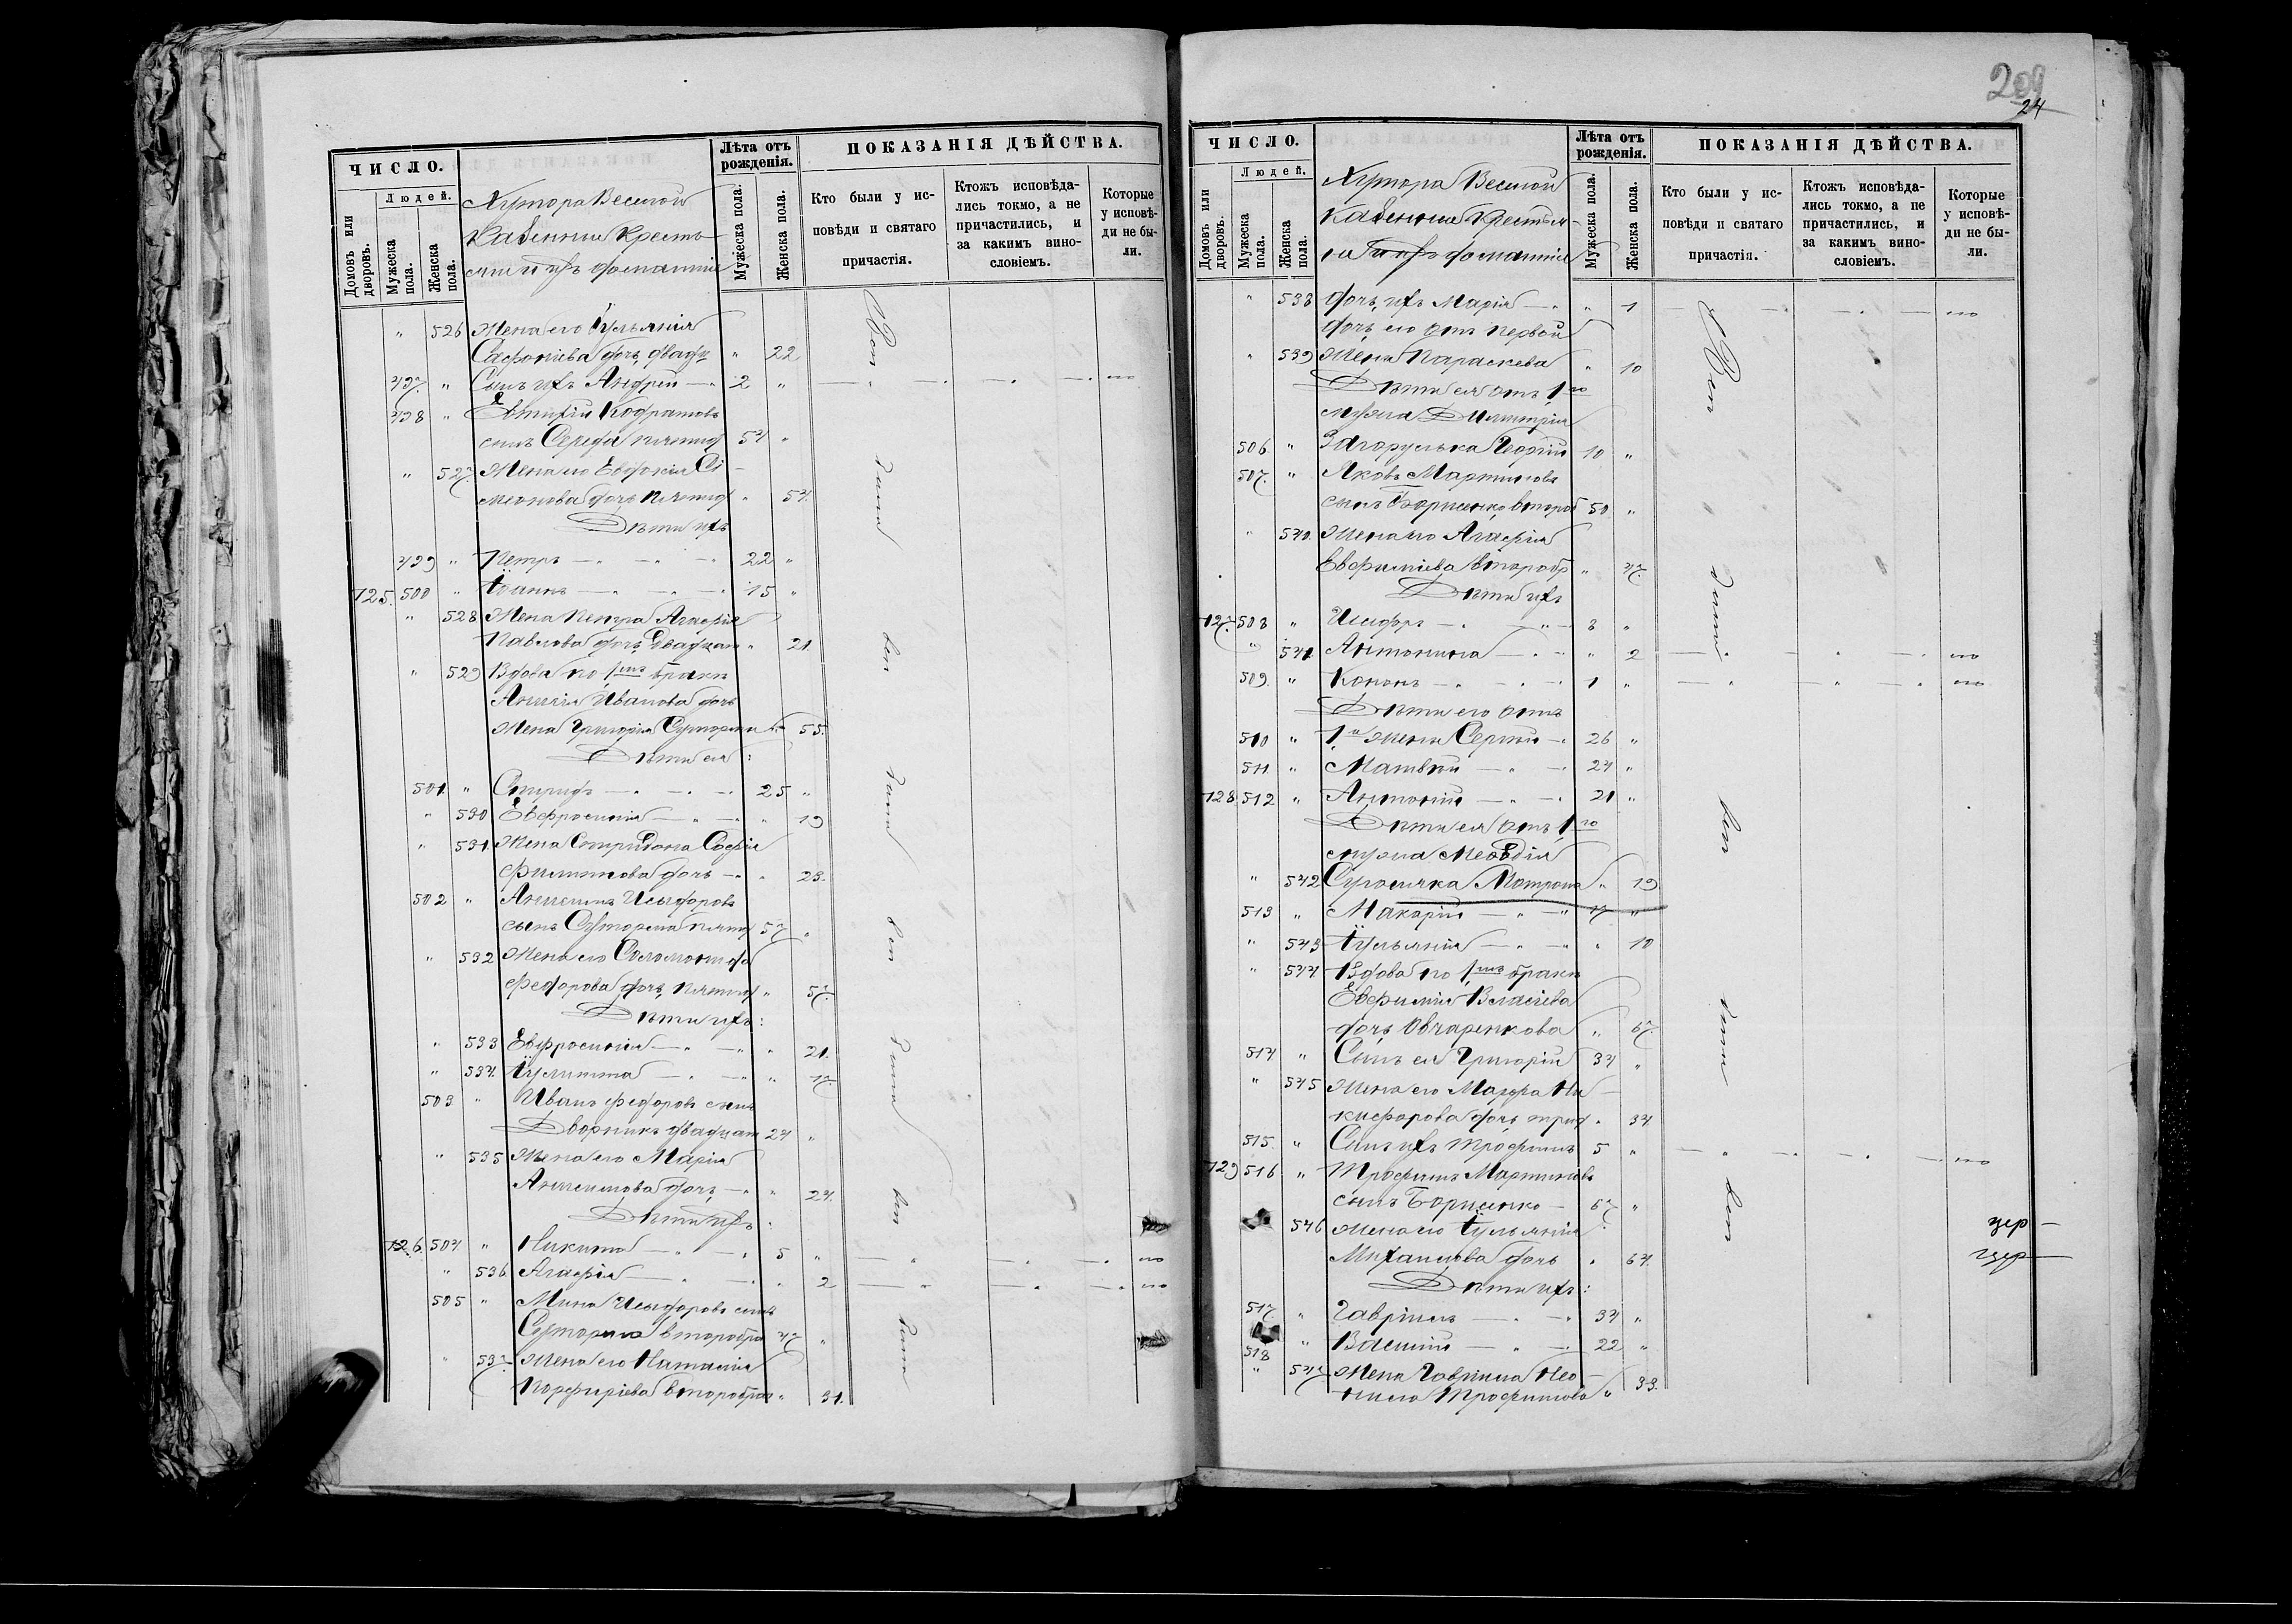 ЧИСЛО.
Людей.
Домовъ или дворовъ.
Мужеска пола.
Женска пола.
Хутора Веселой
Казенные Кресть-
яне и ихъ домашніе
Лѣта отъ рожденія.
Мужеска пола.
Женска пола.
ПОКАЗАНІЯ ДѢЙСТВА.
Кто были у ис-
повѣди и святаго
причастія.
Ктожъ исповѣда-
лись токмо, а не
причастились, и
за какимъ вино-
словіемъ.
Которые
у исповѣ-
ди не бы-
ли.
" 526 Жена его Іульянія
Сафоніева дочь, двадц " 22
497. " Сынъ ихъ Андрей 2 "
498 " Евтихій Кодратовъ
сынъ Середа пятид 54 "
" 527. Жена его Евдокія Си-
меонова дочь пятид " 54.
Дѣти ихъ
499 " Петръ 22 "
125. 500 " Іоаннъ 15 "
" 528 Жена Петра Агафія
Павлова дочь двадцат " 21.
" 529 Вдова по 1мъ бракѣ
Иванова дочь
Жена Григорія 55.
Дѣти ея:
501. " Спирид 25 "
" 530 Евфросинія " 19
" 531. Жена Спиридона Софія
Филиппова дочь " 23.
502 " Исидоровъ
сынъ пятид 57 "
" 532 Жена его Соломонида
Федорова дочь, пятид " 57.
Дѣти ихъ:
" 533 Евфросинія " 21.
" 534. Іулитта " 17.
503 " Иванъ Федоровъ сынъ
Дворникъ двадцат 24 "
" 535 Жена его Марія
дочь " 24.
Дѣти ихъ:
126. 504 " Никита 5 "
" 536. Агафія " 2
505 " Мина Исидоровъ сынъ
второбра 47 "
" 537. Жена его Наталія
Порфиріева второбра " 31.
209
24
ЧИСЛО.
Людей.
Домовъ или дворовъ.
Мужеска пола.
Женска пола.
Хутора Веселой
Казенные Крестья-
не и ихъ домашніе
Лѣта отъ рожденія.
Мужеска пола.
Женска пола.
ПОКАЗАНІЯ ДѢЙСТВА.
Кто были у ис-
повѣди и святаго
причастія.
Ктожъ исповѣда-
лись токмо, а не
причастились, и
за какимъ вино-
словіемъ.
Которые
у исповѣ-
ди не бы-
ли.
" 538 дочь ихъ Марія " 1
дочь его отъ первой
" 539 Жены Параскева " 10
Дѣти ея отъ 1го
мужа Димитрія
506. " Загорулька Георгій 10 "
507. " Яковъ Мартиновъ
сынъ Борисенко второб 50 "
" 540. Жена его Агафія
Евфиміева второбр " 47.
Дѣти ихъ
127. 508 " Исидоръ 8 "
" 541. Антонина " 2
509. " Кононъ 1 "
Дѣти его отъ
510 " 1й жены Сергій 26 "
511. " Матвѣй 24 "
128. 512 " Антоній 21 "
Дѣти ея отъ 1го
мужа
" 542 Мотрона " 19
513 " Макарій 17 "
" 543 Іульянія " 10
" 544. Вдова по 1мъ бракѣ
Евфимія Власіева
дочь Овчаренкова " 67.
514 " Сынъ ея Григорій 34 "
" 545 Жена его Марфа Ни-
кифорова дочь трид " 34
515. " Сынъ ихъ Трофимъ 5 "
129 516. " Трофимъ Мартиновъ
сынъ Борисенко 67 "
546 Жена его Іульянія
Михаилова дочь " 64.
Дѣти ихъ:
517 " Гавріилъ 34 "
518 " Василій 22 "
" 547 Жена Гавріила Нео-
нила Трофимова " 33.